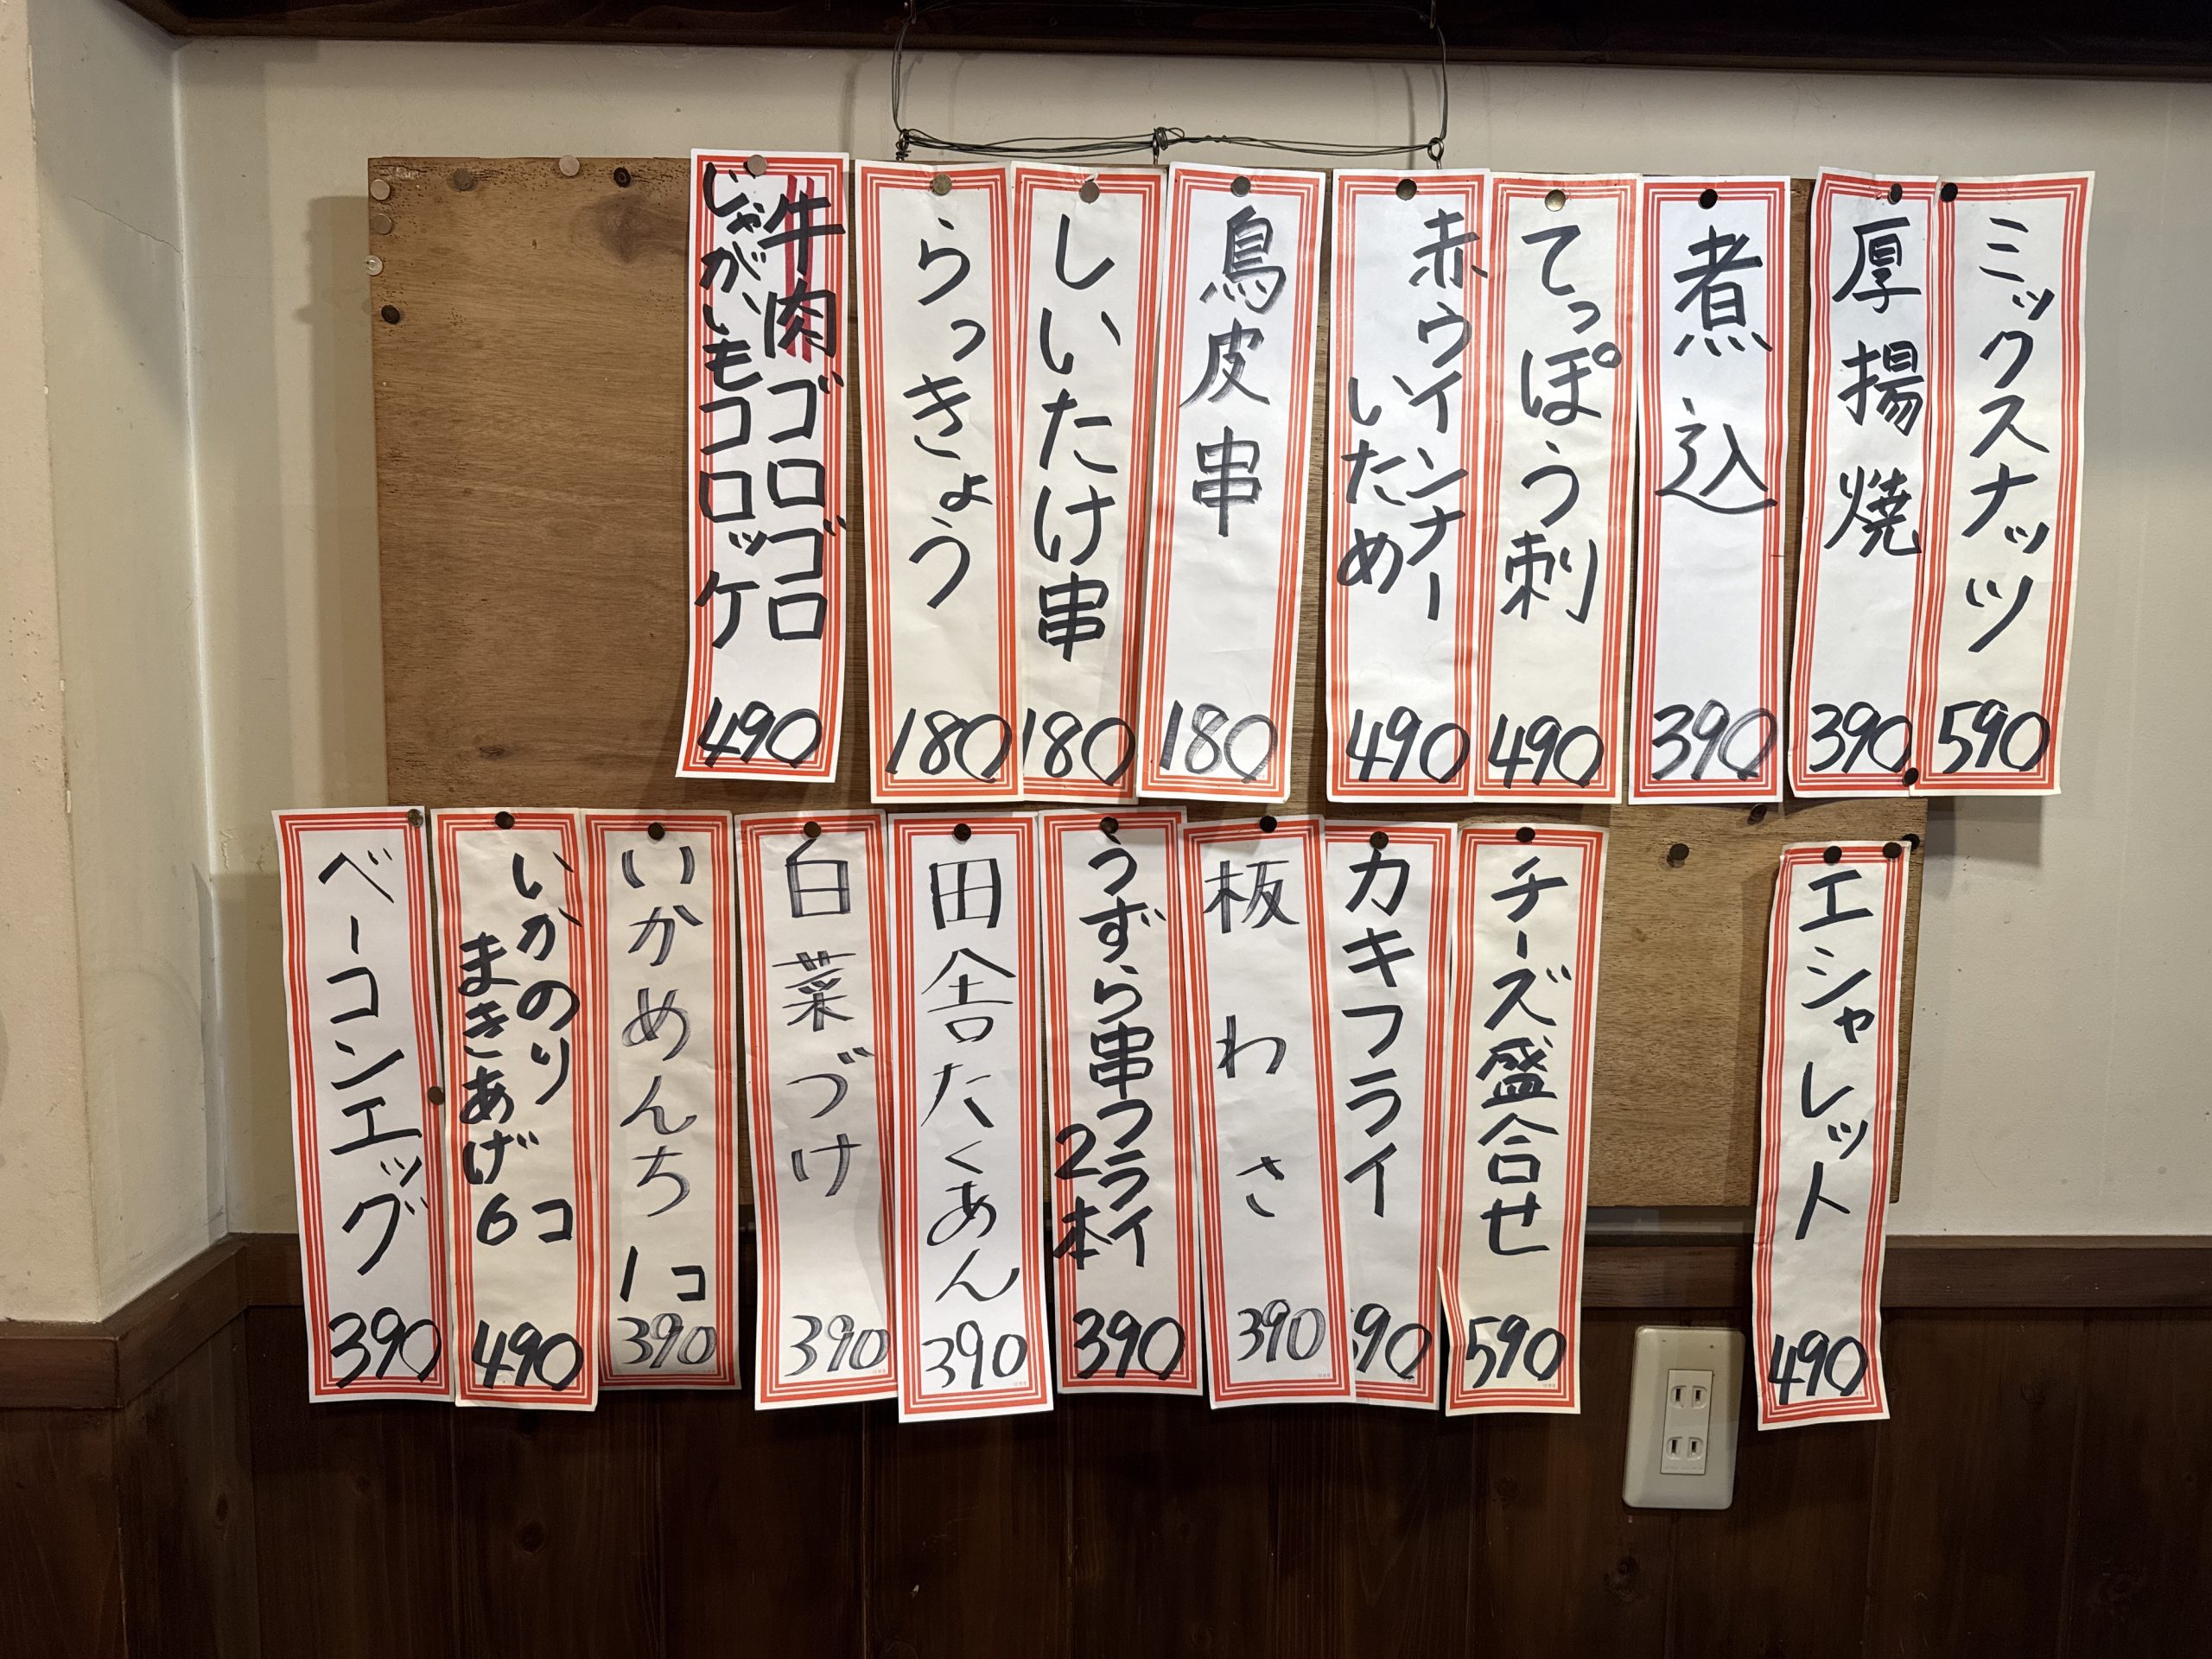 ミックスナッツ
590
厚揚焼
390
煮込
390
てっぽう刺
490
赤ウインナー
いため
490
鳥皮串
180
しいたけ串
180
らっきょう
180
牛肉ゴロゴロ
じゃがいもコロッケ
490
エシャレット
490
チーズ盛合せ
590
カキフライ
90
板わさ
390
うずら串フライ
2本
390
田舎たくあん
390
白菜づけ
390
いかめんち
1コ
390
いかのり
まきあげ
6コ
490
ベーコンエッグ
390